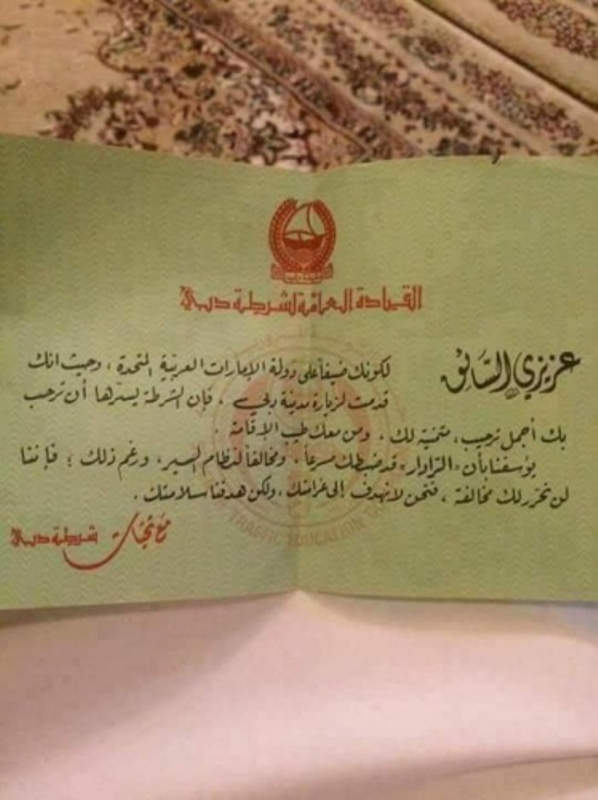 القيادة العامة لشرطة دبي
عزيزي السائق
لكونك ضيفاً على دولة الإمارات العربية المتحدة، وحيث انك
قدمت لزيارة مدينة دبي، فإن الشرطة يسرّها أن ترحب
بك أجمل ترحيب، متمنية لك، ومن معك طيب الإقامة.
يؤسفنا بأن «الرّادار» قد ضبطك مسرعاً، ومخالفاً لنظام السير، ورغم ذلك؛ فإننا
لن نحرر لك مخالفة، فنحن لا نهدف إلى غرامتك، ولكن هدفنا سلامتك.
مع تحيات شرطة دبي
TRAFFIC EDUCATION